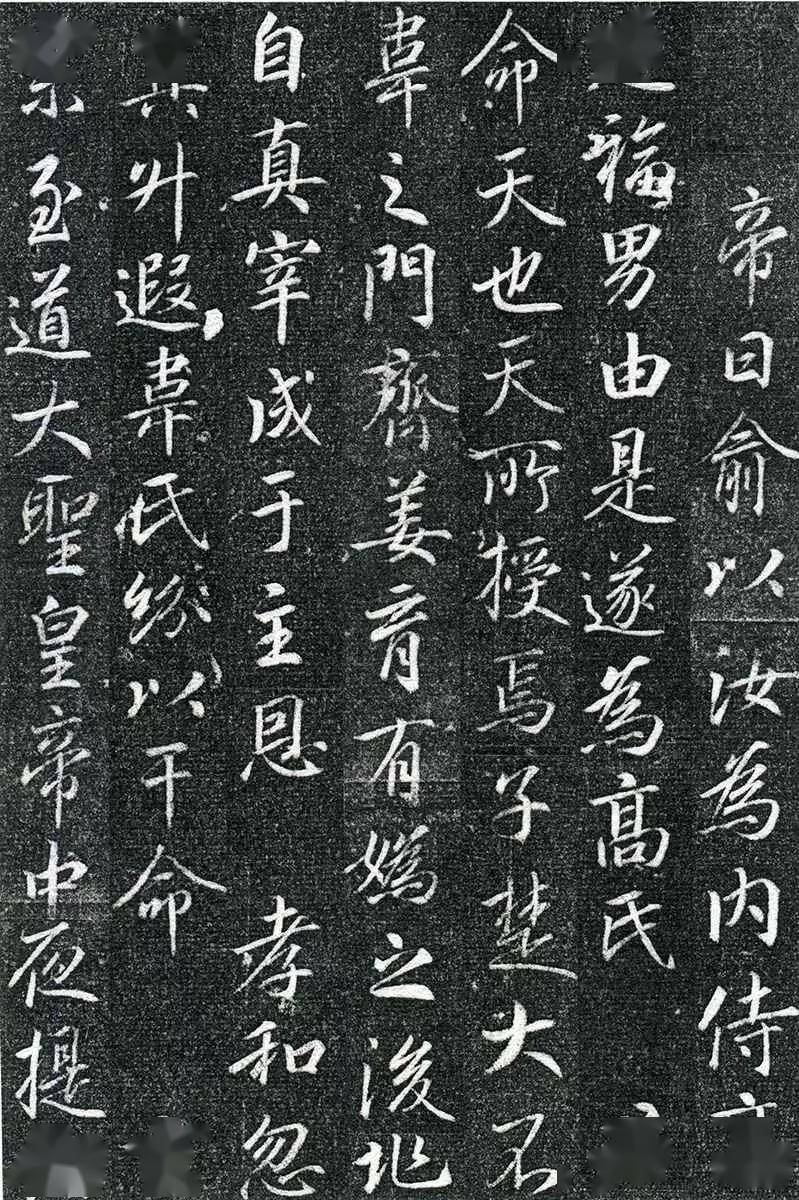 帝曰俞以汝為內侍
福男由是遂為高氏
命天也天所授焉子楚大不
韋之門齊姜育有媯之後兆
自真宰成于主恩 孝和忽
升遐韋氏紛以干命
宗至道大聖皇帝中夜提